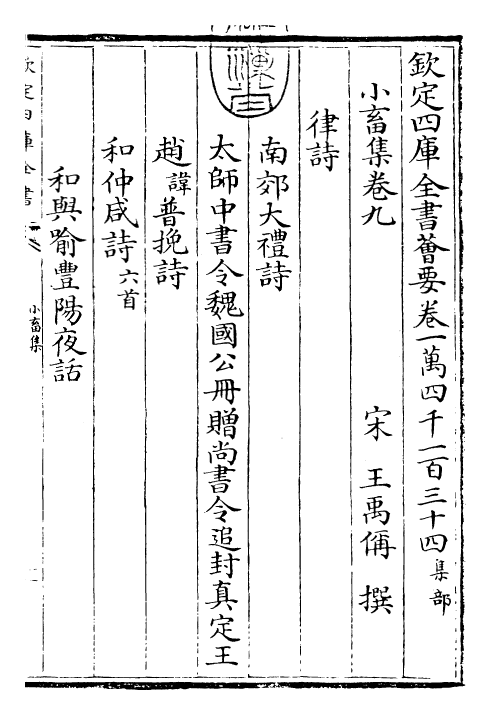 欽定四庫全書薈要卷一萬四千一百三十四集部
小畜集卷九
宋 王禹偁 撰
律詩
南郊大禮詩
太師中書令魏國公冊贈尚書令追封真定王
趙諱普挽詩
和仲咸詩六首
和與喻豐陽夜話
欽定四庫全書
小畜集